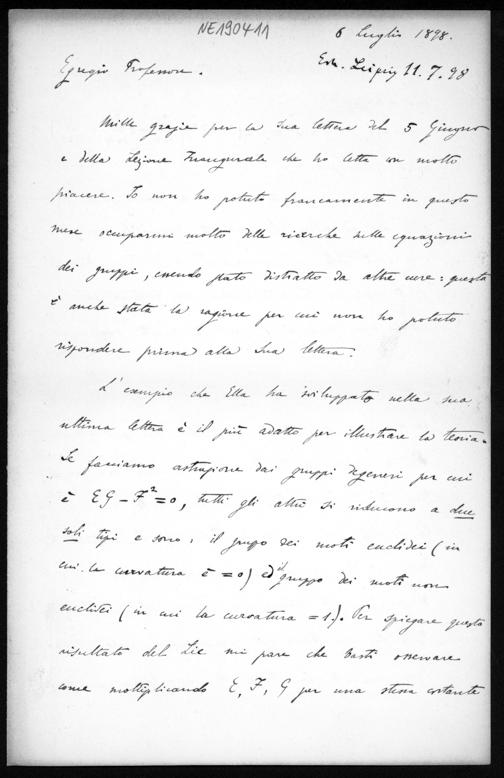 NE190411
6 Luglio 1898.
Erh. Leipzig 11.7.98
Egregio Professore.
Mille grazie per la sua lettera del 5 Giugno
e della Lezione Inaugurale che ho letta con molto
piacere. Io non ho potuto francamente in questo
mese occuparmi molto delle ricerche sulle equazioni
dei gruppi, essendo stato distratto da altre cure: questa
è anche stata la ragione per cui non ho potuto
rispondere prima alla Sua lettera.
L'esempio che Ella ha sviluppato nella sua
ultima lettera è il più adatto per illustrare la teoria.
Se facciamo astrazione dai gruppi degeneri per cui
è EG-F²=0, tutti gli altri si riducono a due
soli tipi e sono: il gruppo dei moti euclidei (in
cui la curvatura è =0) ed il gruppo dei moti non
euclidei (in cui la curvatura =1). Per spiegare questo
risultato del Lie mi pare che basti osservare
come moltiplicando E, F, G per una stessa costante